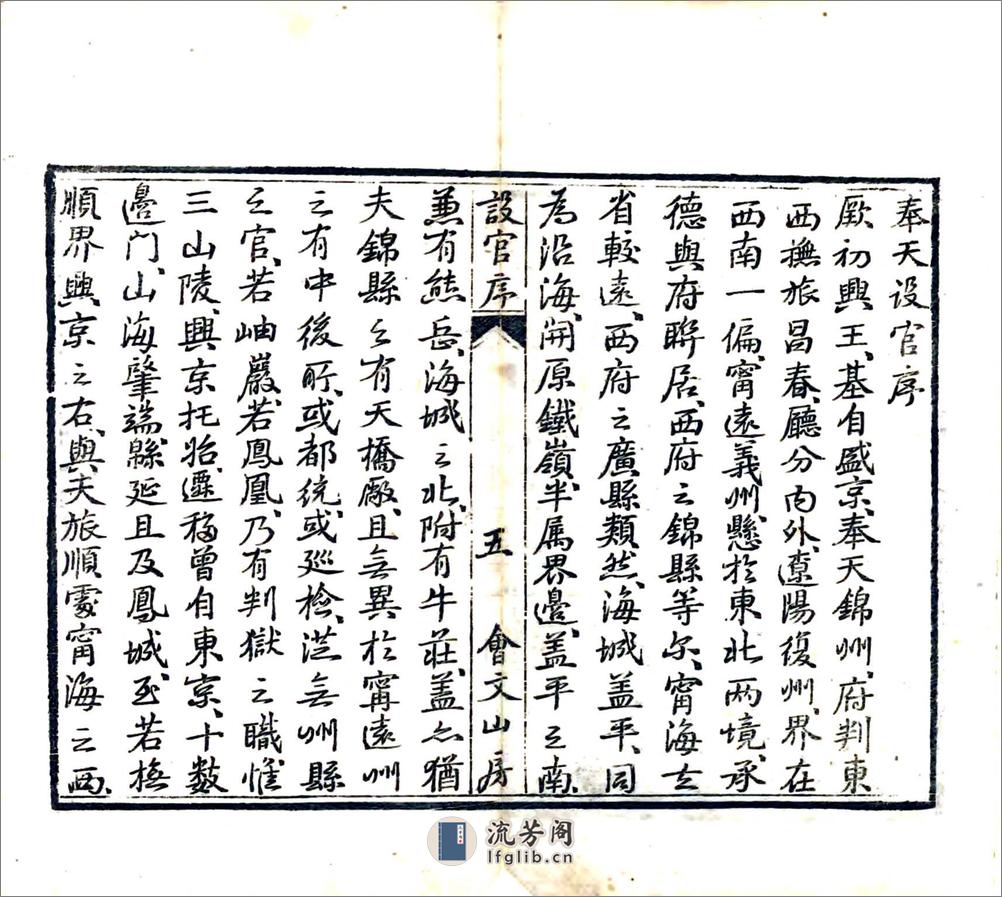 奉天设官序
厥初興王、基自盛京、奉天錦州、府判東
西、撫旅昌春、廳分內外、遼陽復州、界在
西南一偏、甯遠義州、懸於東北兩境、承
德與府聯居、西府之錦縣等尔、甯海去
省較遠、西府之廣縣類然、海城蓋平、同
為沿海、開原鐵嶺、半属界邊、盖平之南、
設官序 五 會文山房
兼有熊岳、海城之北、附有牛莊、盖亦猶
夫錦縣之有天橋廠、且無異於甯遠州
之有中後所、或都统、或巡檢、涖無州縣
之官、若岫巖、若鳳凰、乃有判獄之職、惟
三山陵、興京托始、遷移曾自東京、十数
邊門、山海肇端、緜延且及鳳城、至若撫
順界興京之右、與夫旅順處甯海之西、
流芳阁
lfglib.cn